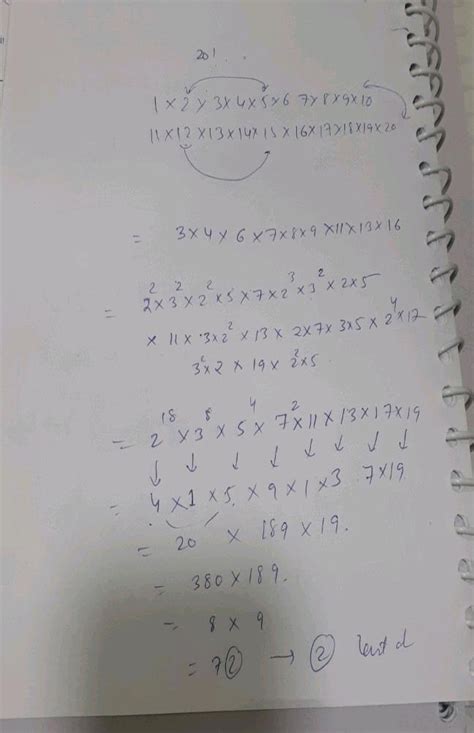 20!
1 × 2 × 3 × 4 × 5 × 6 7 × 8 × 9 × 10
11 × 12 × 13 × 14 × 15 × 16 × 17 × 18 × 19 × 20
= 3 × 4 × 6 × 7 × 8 × 9 × 11 × 13 × 16
= 2² × 3² × 2² × 5 × 7 × 2³ × 3² × 2 × 5
× 11 × 3 × 2² × 13 × 2 × 7 × 3 × 5 × 2⁴ × 17
3² × 2 × 19 × 2² × 5
= 2¹⁸ × 3⁸ × 5⁴ × 7² × 11 × 13 × 17 × 19
↓ ↓ ↓ ↓ ↓ ↓ ↓ ↓
= 4 × 1 × 5 × 9 × 1 × 3 7 × 19
= 20 × 189 × 19.
= 380 × 189.
= 8 × 9
= 72 → 2